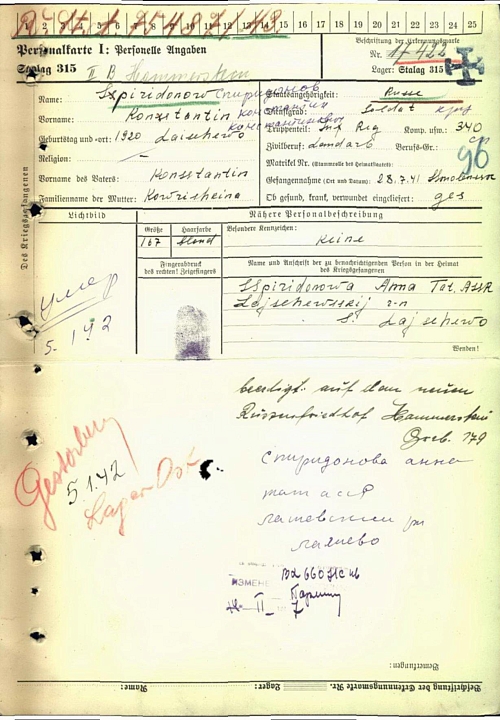 1 2 3 4 5 6 7 8 9 10 11 12 13 14 15 16 17 18 19 20 21 22 23 24 25
Personalkarte I: Personelle Angaben
Beschriftung der Erkennungsmarke
Nr. 17422
Stalag 315 II B Hammerstein
Lager: Stalag 315
Des Kriegsgefangenen
Name: Sspiridonow Спиридонов
Staatsangehörigkeit: Russe
Vorname: Konstantin Константин
Dienstgrad: Soldat
Константинович
Geburtstag und -ort: 1920 Laischewo
Truppenteil: Inf. Reg Komp. usw.: 340
Religion: —
Zivilberuf: Landarb. Berufs-Gr.:
96
Matrikel Nr. (Stammrolle des Heimatstaates):
Vorname des Vaters: Konstantin
Gefangennahme (Ort und Datum): 28.7.41 Smolensk
Familienname der Mutter: Kowrisheina
Ob gesund, krank, verwundet eingeliefert: ges
Lichtbild
Nähere Personalbeschreibung
Größe Haarfarbe
Besondere Kennzeichen:
167 blond
Keine
Fingerabdruck
des rechten! Zeigefingers
Name und Anschrift der zu benachrichtigenden Person in der Heimat
des Kriegsgefangenen
Sspiridonowa Anna Tat. ASSR
Lajschewskij r-n
S. Lajschewo
Wenden!
умер
5.1.42
beerdigt auf dem neuen
Russenfriedhof Hammerstein
Grab. 179
Gestorben
5.1.42
Lager Ost
Спиридонова анна
тат асср
лашевский рн
лаишево
ИЗМЕНЕ
Bemerkungen:
Beschriftung der Erkennungsmarke Nr. Lager: Name: